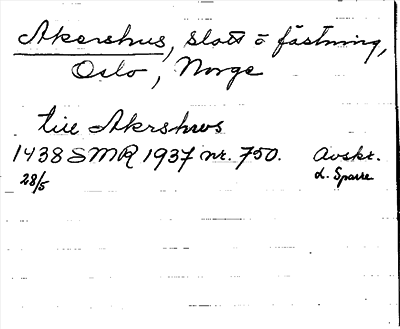 Akershus, slott o fästning,
Oslo, Norge
till Akershus
1438 SMR 1937 nr. 750. Avskr.
28/5 d. Sparre